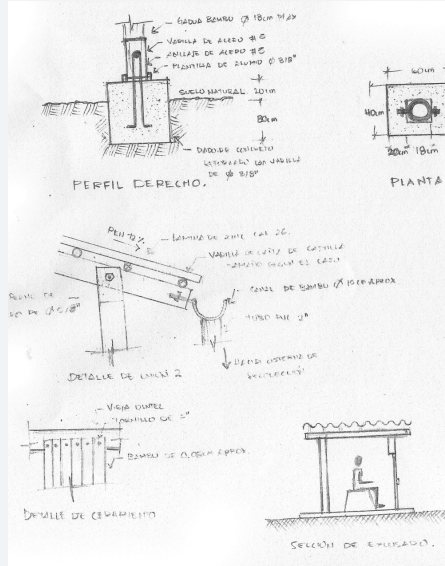 GADUA BAMBU Ø 18cm
VARILLA DE ACERO #6
ANILLAJE DE ACERO #6
PLANTILLA DE ALUMIO Ø 3/8"
SUELO NATURAL. 20cm
80cm
DADO DE CONCRETO
CON VARILLA
DE Ø 3/8"
PERFIL DERECHO.
60cm
40cm
20cm 18cm
PLANTA
PEN 12%
LAMINA DE ZINC CAL 26.
VARILLA DE CAÑA DE CASTILLA
TAMAÑO SEGUN EL CASO
CANAL DE BAMBU Ø 10cm APROX
TUBO PVC 2"
HACIA CISTERNA DE
RECOLECCIÓN
DETALLE DE UNION 2
VIGA DINTEL
TORNILLO DE 2"
BAMBU DE 0.05cm APROX.
DETALLE DE CERRAMIENTO
SECCION DE EXCUSADO.